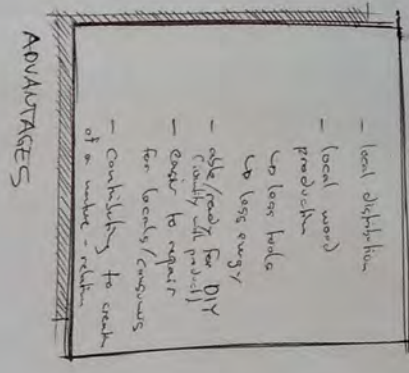 - local distribution
- local wood
production
↳ less tools
↳ less energy
- able/ready for DIY
(identify with product)
- easier to repair
for locals/consumers
- contributing to create
of a nature - relation
ADVANTAGES